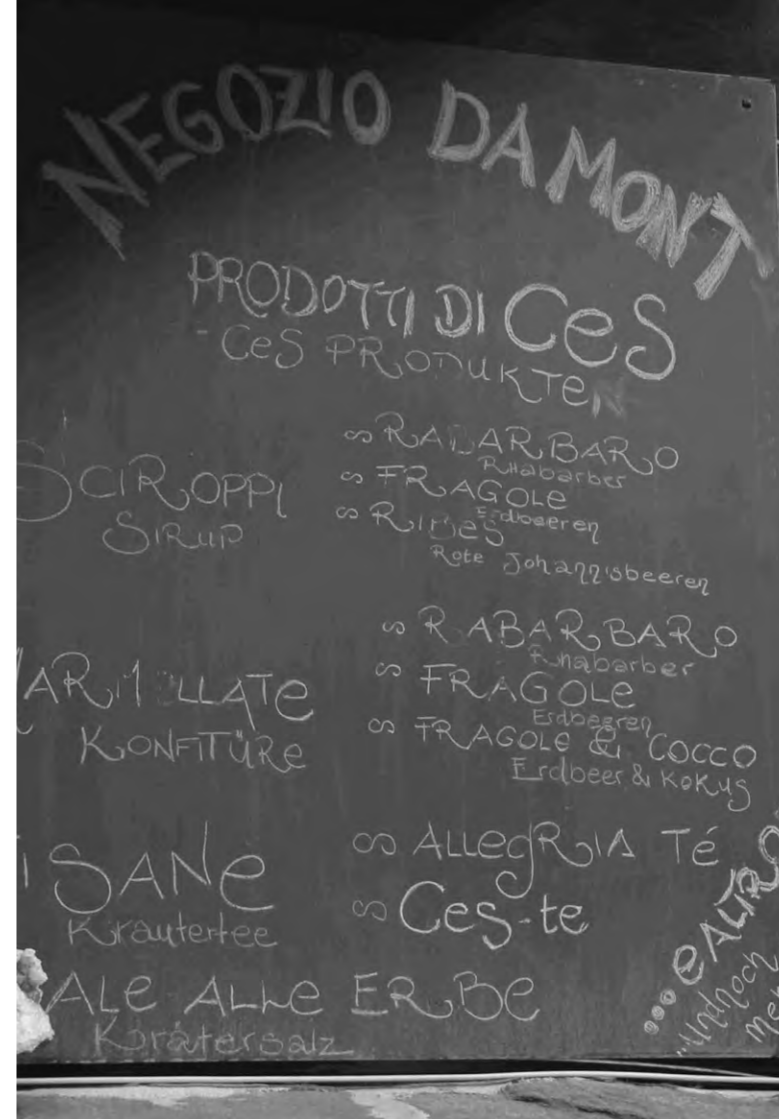 NEGOZIO DA MONT
PRODOTTI DI CeS
- CeS PRODUKTEN
SCIROPPI
SIRUP
∾ RABARBARO
Rhabarber
∾ FRAGOLE
Erdbeeren
∾ RIBeS
Rote Johannisbeeren
MARMELLATe
KONFITÜRe
∾ RABARBARO
Rhabarber
∾ FRAGOLE
Erdbeeren
∾ FRAGOLE & COCCO
Erdbeer & KoKus
TISANe
Kräutertee
∾ ALLegRIA Té
∾ Ces-te
ALe ALLe ERBe
Kräutersalz
...e ALTRO
undnoch